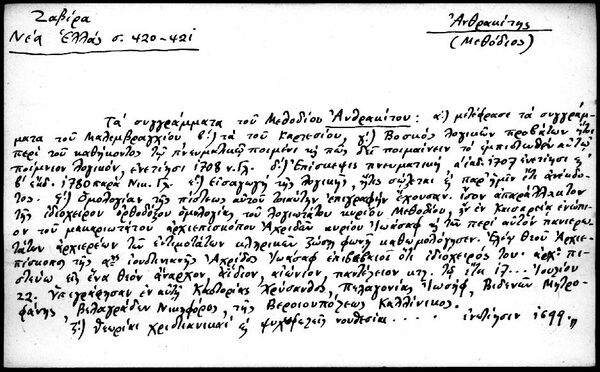 Ζαβίρα
Νέα Ἑλλάς σ. 420-421
Ἀνθρακίτης
(Μεθόδιος)
Τά συγγράμματα τοῦ Μεθοδίου Ἀνθρακίτου: α.) μετέφρασε τά συγγράμ-
ματα τοῦ Μαλεμβραγχίου β.) τά τοῦ Καρτεσίου, γ.) Βοσκός λογικῶν προβάτων ἤτοι
περί τοῦ καθήκοντος τῷ πνευματικῷ ποιμένι καί πῶς δεῖ ποιμαίνειν τό ἐμπιστευθέν αὐτῷ
ποίμνιον λογικόν, ἐνετίησι 1708 ν. Γλ. δ.) Ἐπίσκεψις πνευματική 1707 ἐνετίησι
β' ἐκδ. 1780 παρά Νικ. Γλ. ε.) Εἰσαγωγή τῆς λογικῆς, ἥτις σῴζεται παρ' ἡμῖν ἔτι ἀνέκδο-
τος. ς.) Ὁμολογίαν τῆς πίστεως αὐτοῦ τοιαύτην ἐπιγραφήν ἔχουσαν. ἴσον ἀπαράλλακτον
τῆς ἰδιοχείρου ὀρθοδόξου ὁμολογίας τοῦ λογιωτάτου κυρίου Μεθοδίου, ἥν ἐν Καστορίᾳ ἐνώπι-
ον τοῦ μακαριωτάτου ἀρχιεπισκόπου Ἀχριδῶν κυρίου Ἰωάσαφ καί τῶν περί αὐτόν πανιερω-
τάτων ἀρχιερέων τῶν ἐντιμοτάτων κληρικῶν ζώσῃ φωνῇ καθωμολόγησεν. Ἐλέῳ Θεοῦ Ἀρχιε-
πίσκοπος τῆς α΄ης Ἰουστινιανῆς Ἀχρίδος Ἰωάσαφ ἐπιβεβαιοῖ ὅτι ἰδιόχειρός του. ἀρχ. πι-
στεύω εἰς ἕνα Θεόν ἄναρχον, ἀΐδιον, αἰώνιον, παντέλειον κτλ. τῷ ἔτει 17... Ἰουλίου
22. Ὑπεγράφησαν ἐν αὐτῇ Καστορίας Χρύσανθος, Πελαγονίας Ἰωσήφ, Βιδενῶν Μητρο-
φάνης, Βελαγράδων Νικηφόρος, τῆς Βεροιουπόλεως Καλλίνικος.
ζ.) Θεωρίαι χριστιανικαί καί ψυχωφελεῖς νουθεσίαι..... ἐνετίησιν 1699.,,